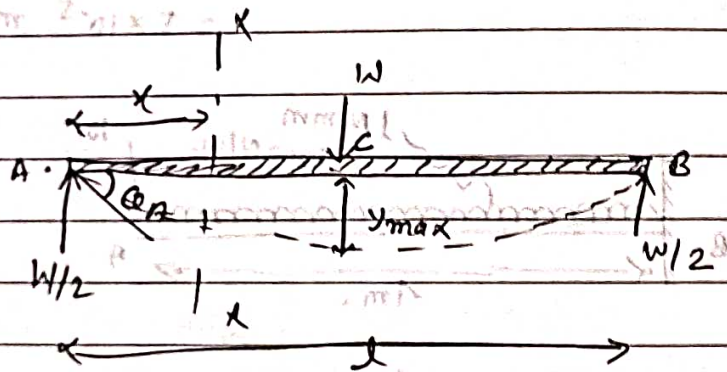 X
W
x
C
A
B
θA
ymax
W/2
W/2
X
l